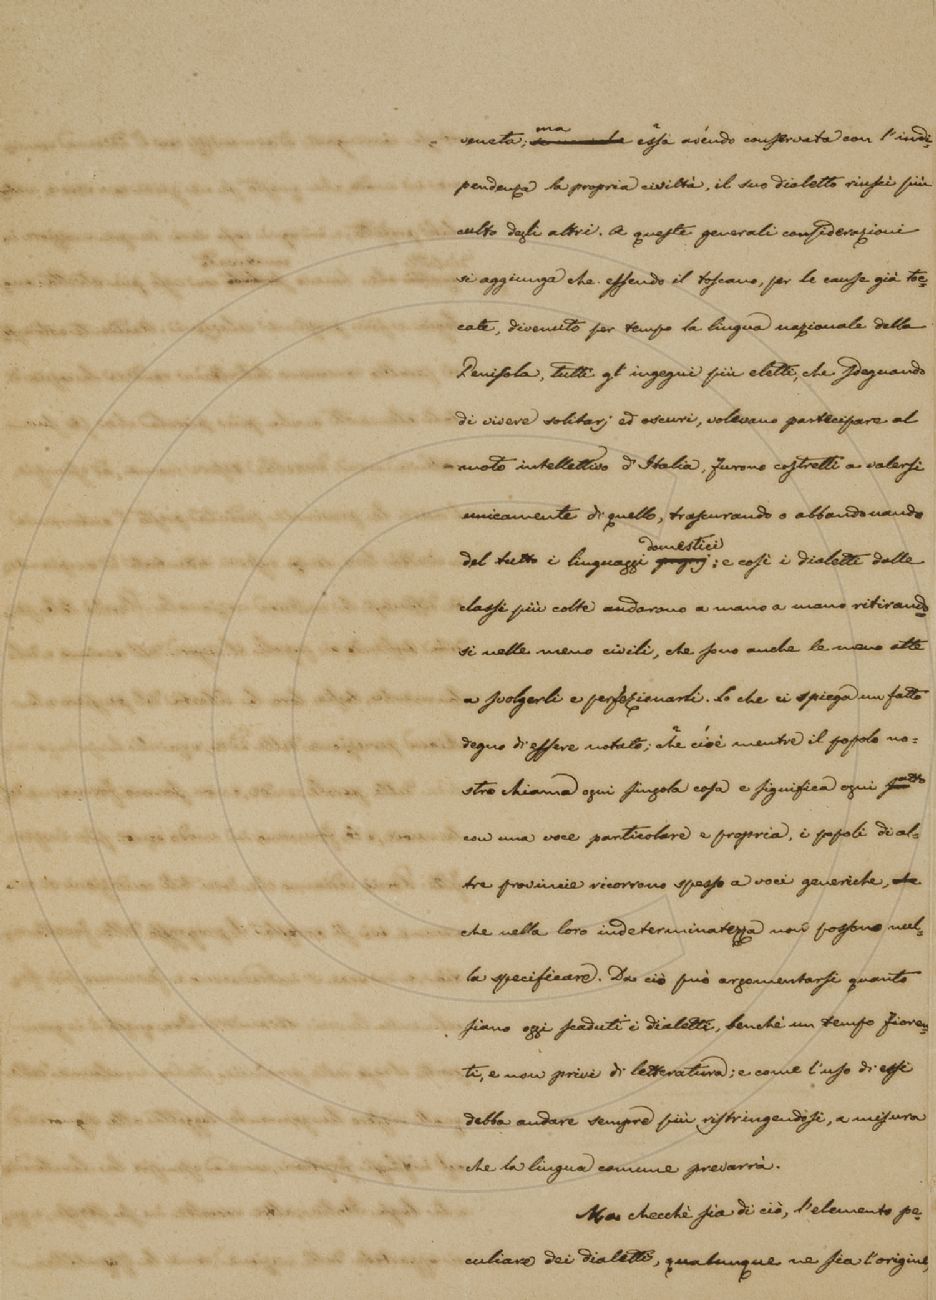 veneta; ma essa avendo conservata con l'indi-
pendenza la propria civiltà, il suo dialetto riuscì più
culto degli altri. A queste generali considerazioni
si aggiunga che essendo il toscano, per le cause già toc-
cate, divenuto per tempo la lingua nazionale della
Penisola, tutti gl'ingegni più eletti, che sdegnando
di vivere solitarj ed oscuri, volevano partecipare al
moto intellettivo d'Italia, furono costretti a valersi
unicamente di quello, trascurando o abbandonando
del tutto i linguaggi domestici; e così i dialetti dalle
classi più colte andarono a mano a mano ritirando
si nelle meno civili, che sono anche le meno atte
a svolgerli e perfezionarli. Lo che ci spiega un fatto
degno di essere notato; che cioè mentre il popolo no-
stro chiama ogni singola cosa e significa ogni fatto
con una voce particolare e propria, i popoli di al-
tre provincie ricorrono spesso a voci generiche,
che nella loro indeterminatezza non possono nul-
la specificare. Da ciò può argomentarsi quanto
siano oggi scaduti i dialetti, benchè un tempo fioren-
ti, e non privi di letteratura; e come l'uso di essi
debba andare sempre più ristringendosi, a misura
che la lingua comune prevarrà.
Ma checchè sia di ciò, l'elemento pe-
culiare dei dialetti, qualunque ne sia l'origine,